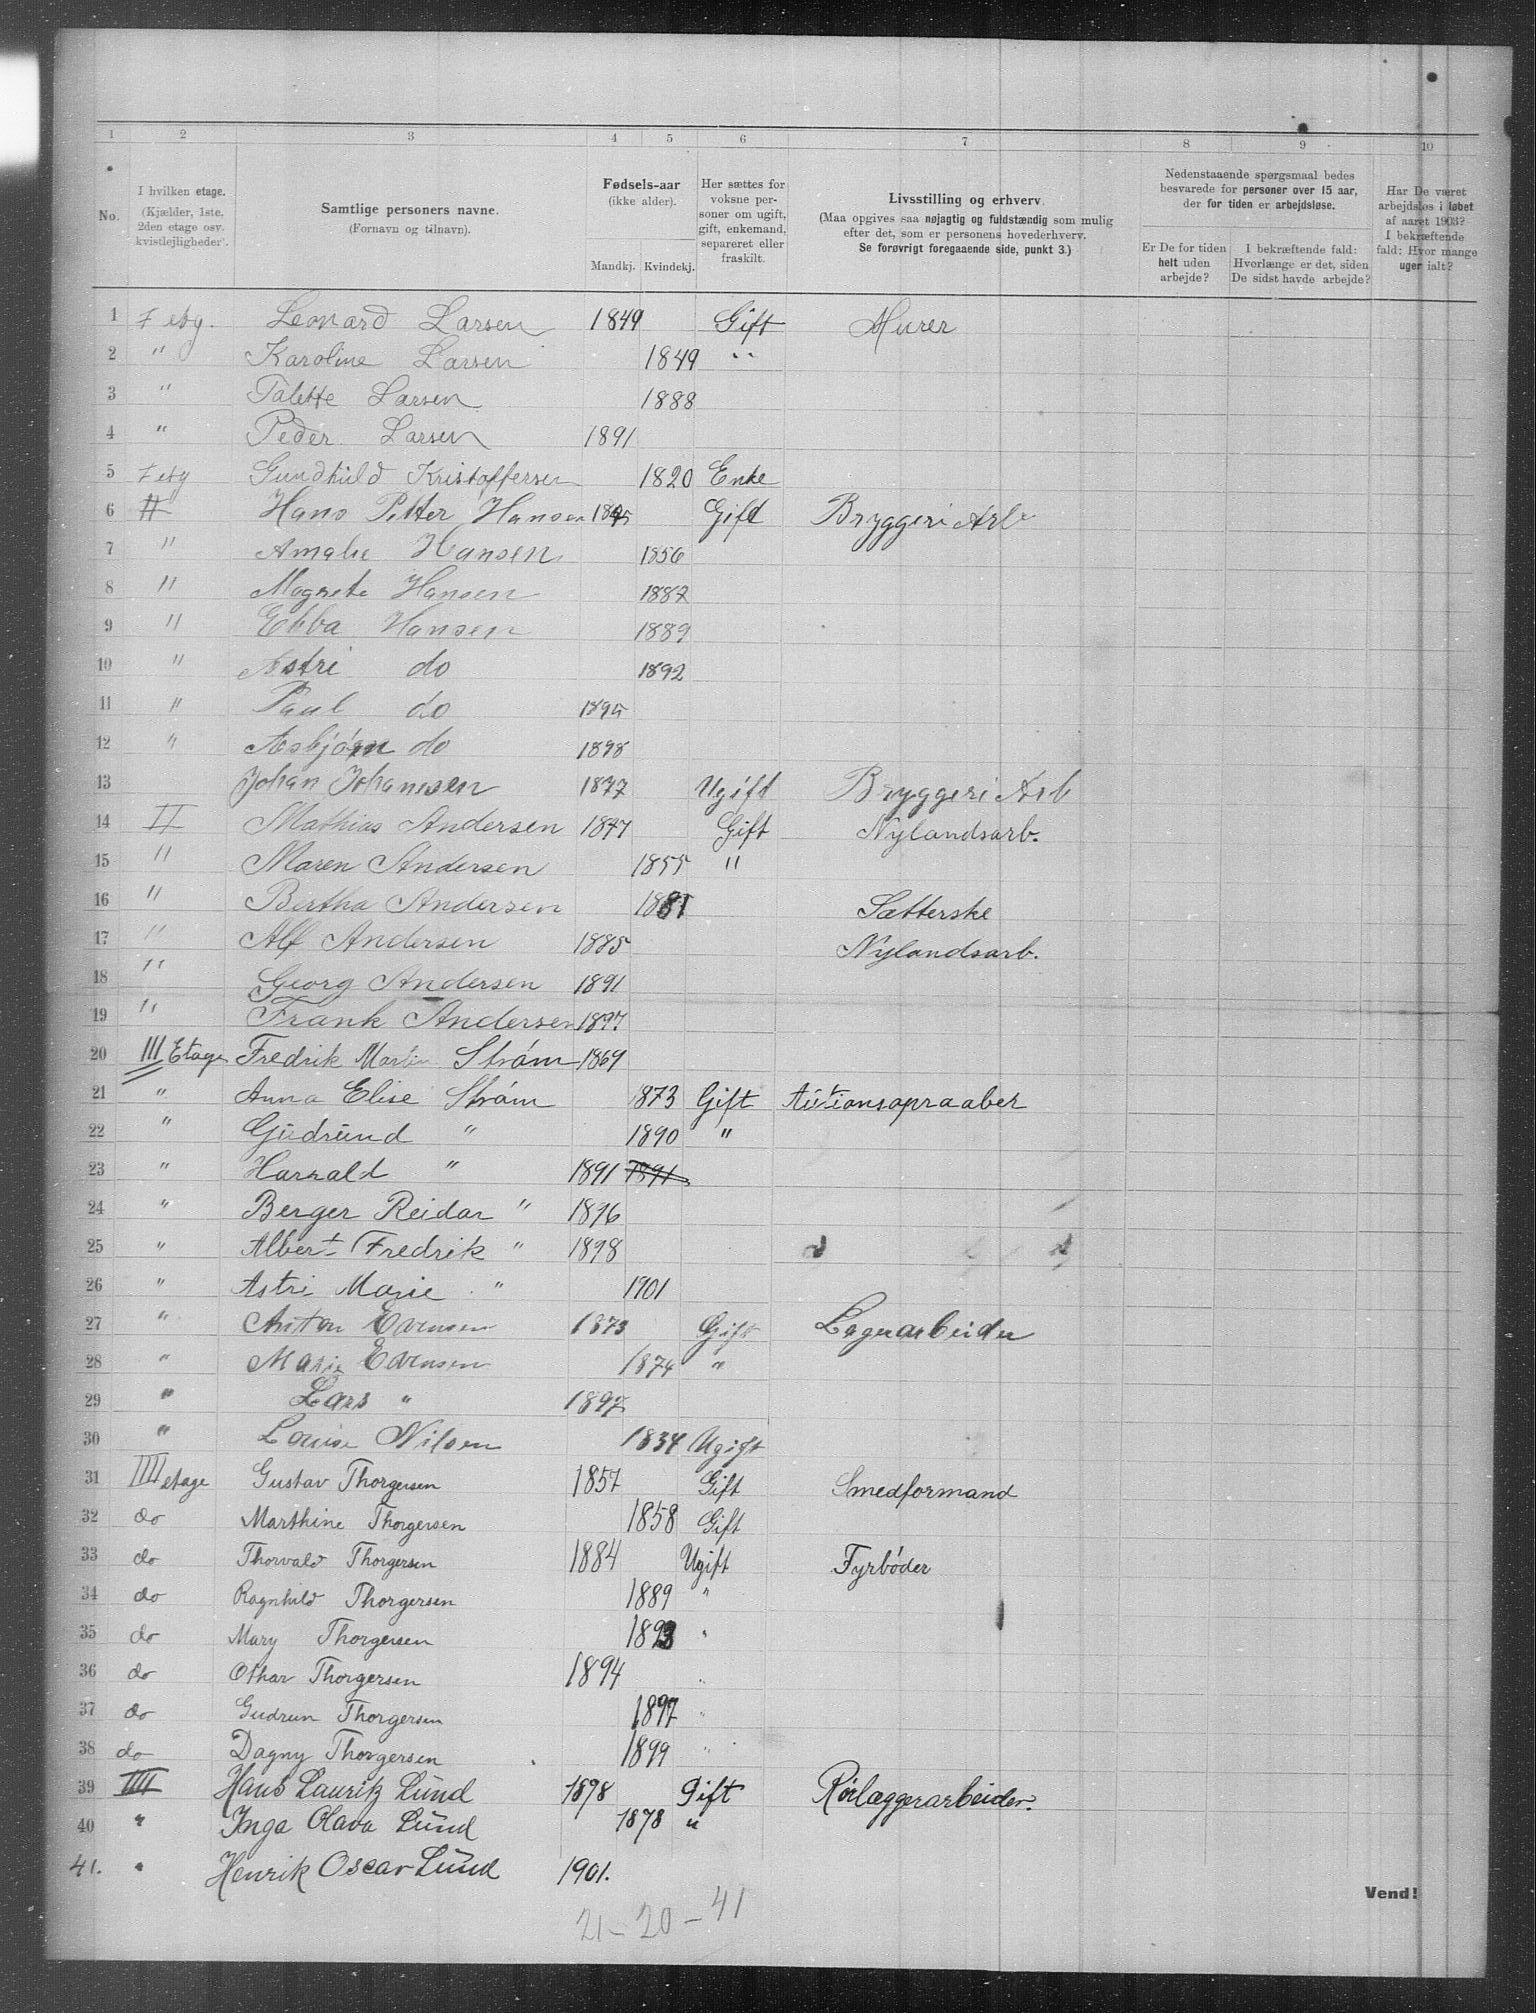 1 2 3 4 5 6 7 8 9 10
No.
I hvilken etage. (Kjælder, 1ste, 2den etage osv. kvistleiligheder).
Samtlige personers navne. (Fornavn og tilnavn).
Fødsels-aar (ikke alder). Mandkj. Kvindekj.
Her sættes for voksne personer om ugift, gift, enkemand, separeret eller fraskilt.
Livsstilling og erhverv. (Maa opgives saa nøjagtig og fuldstændig som mulig efter det, som er personens hovederhverv. Se forøvrigt foregaaende side, punkt 3.)
Nedenstaaende spørgsmaal bedes besvarede for personer over 15 aar, der for tiden er arbejdsløse.
Er De for tiden helt uden arbejde?
I bekræftende fald: Hvorlænge er det, siden De sidst havde arbejde?
Har De været arbejdsløs i løbet af aaret 1903? I bekræftende fald: Hvor mange uger ialt?
1 I etg. Leonard Larsen 1849 Gift Murer
2 " Karoline Larsen 1849 "
3 " Talette Larsen 1888
4 " Peder Larsen 1891
5 I etg Gundhild Kristoffersen 1820 Enke
6 II Hans Petter Hansen Gift Bryggeri Arb
7 " Amalie Hansen 1856
8 " Magrete Hansen 1887
9 " Ebba Hansen 1889
10 " Astri do 1892
11 " Paul do 1895
12 " Asbjørn do 1898
13 Johan Johansen 1877 Ugift Bryggeri Arb
14 II Mathias Andersen 1847 Gift Nylandsarb.
15 " Maren Andersen 1855 "
16 " Bertha Andersen 1881 Sætterske
17 " Alf Andersen 1885 Nylandsarb.
18 " Georg Andersen 1891
19 " Frank Andersen 1897
20 III Etage Fredrik Martin Strøm 1869
21 " Anna Elise Strøm 1873 Gift Autionsopraaber
22 " Gudrund " 1890 "
23 " Harrald " 1891 1891
24 " Berger Reidar " 1896
25 " Albert Fredrik " 1898
26 " Astri Marie " 1901
27 " Anton Evensen 1873 Gift Lagerarbeider
28 " Marie Evensen 1874 "
29 " Lars " 1897
30 " Louise Nilsen 1834 Ugift
31 IIII etage Gustav Thorgersen 1857 Gift Smedformand
32 do Marthine Thorgersen 1858 Gift
33 do Thorvald Thorgersen 1884 Ugift Fyrbøder
34 do Ragnhild Thorgersen 1889 "
35 do Mary Thorgersen 1893 "
36 do Othar Thorgersen 1894 "
37 do Gudrun Thorgersen 1897 "
38 do Dagny Thorgersen 1899 "
39 IIII Hans Lauritz Lund 1878 Gift Rørlæggerarbeider.
40 " Inga Olava Lund 1878 "
41. " Henrik Oscar Lund 1901.
Vend!
21 – 20 – 41